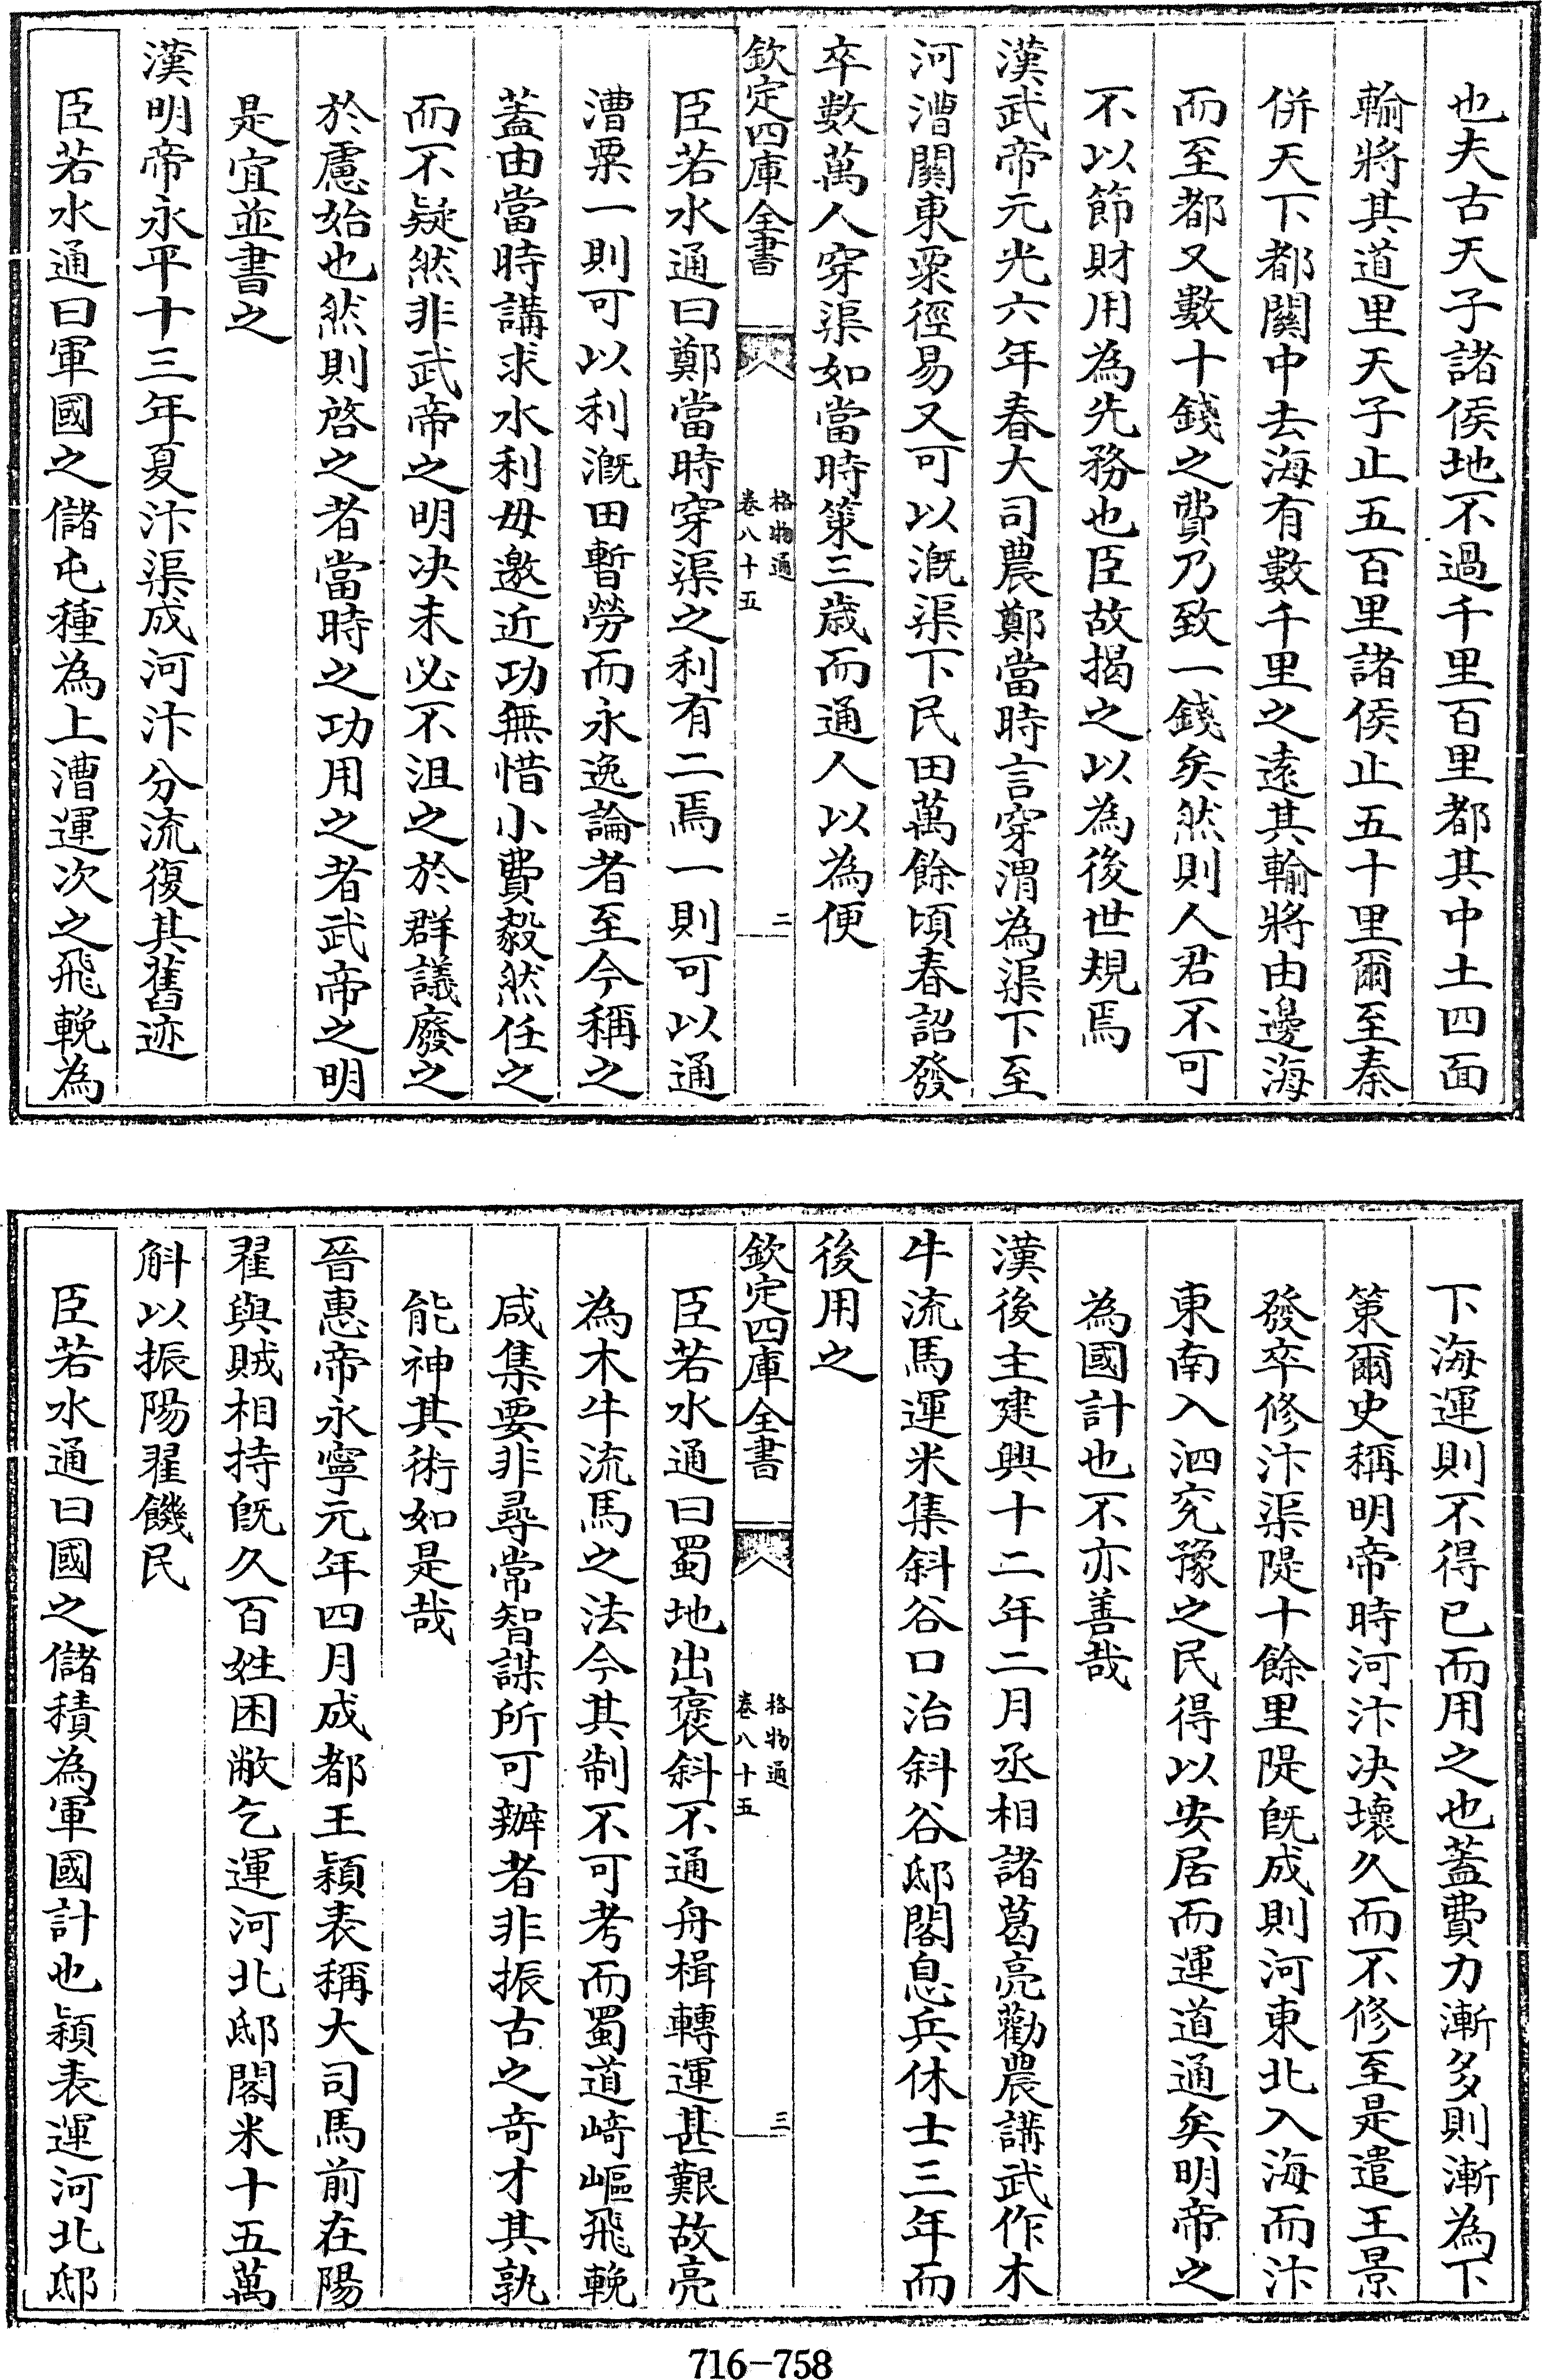 也夫古天子諸侯地不過千里百里都其中土四面
輸將其道里天子止五百里諸侯止五十里爾至秦
併天下都關中去海有數千里之遠其輸將由邊海
而至都又數十錢之費乃致一錢矣然則人君不可
不以節財用為先務也臣故揭之以為後世規焉
漢武帝元光六年春大司農鄭當時言穿渭為渠下至
河漕關東粟徑易又可以溉渠下民田萬餘頃春詔發
卒數萬人穿渠如當時策三歲而通人以為便
欽定四庫全書
格物通
卷八十五
二
臣若水通曰鄭當時穿渠之利有二焉一則可以通
漕粟一則可以利溉田暫勞而永逸論者至今稱之
蓋由當時講求水利毋邀近功無惜小費毅然任之
而不疑然非武帝之明決未必不沮之於群議廢之
於慮始也然則啓之者當時之功用之者武帝之明
是宜並書之
漢明帝永平十三年夏汴渠成河汴分流復其舊迹
臣若水通曰軍國之儲屯種為上漕運次之飛輓為
下海運則不得已而用之也蓋費力漸多則漸為下
策爾史稱明帝時河汴決壞久而不修至是遣王景
發卒修汴渠隄十餘里隄既成則河東北入海而汴
東南入泗兖豫之民得以安居而運道通矣明帝之
為國計也不亦善哉
漢後主建興十二年二月丞相諸葛亮勸農講武作木
牛流馬運米集斜谷口治斜谷邸閣息兵休士三年而
後用之
欽定四庫全書
格物通
卷八十五
三
臣若水通曰蜀地出褒斜不通舟楫轉運甚艱故亮
為木牛流馬之法今其制不可考而蜀道崎嶇飛輓
咸集要非尋常智謀所可辦者非振古之奇才其孰
能神其術如是哉
晉惠帝永寧元年四月成都王穎表稱大司馬前在陽
翟與賊相持既久百姓困敝乞運河北邸閣米十五萬
斛以振陽翟饑民
臣若水通曰國之儲積為軍國計也穎表運河北邸
716-758